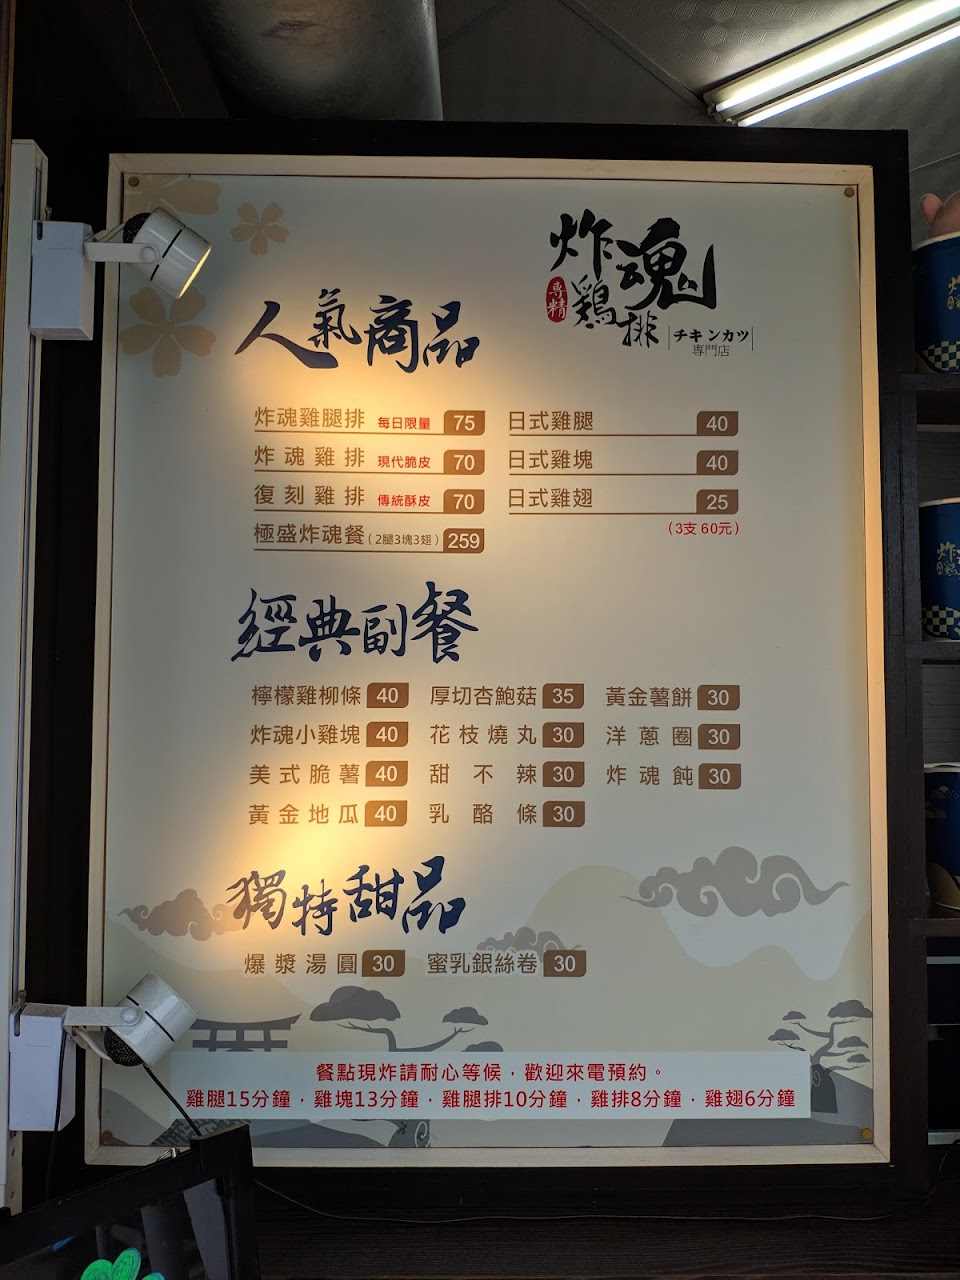 炸魂
専精
鷄排
チキンカツ
専門店
人氣商品
炸魂雞腿排 每日限量 75
炸魂雞排 現代脆皮 70
復刻雞排 傳統酥皮 70
極盛炸魂餐(2腿3塊3翅) 259
日式雞腿 40
日式雞塊 40
日式雞翅 25
(3支 60元)
經典副餐
檸檬雞柳條 40 厚切杏鮑菇 35 黃金薯餅 30
炸魂小雞塊 40 花枝燒丸 30 洋蔥圈 30
美式脆薯 40 甜不辣 30 炸魂飩 30
黃金地瓜 40 乳酪條 30
獨特甜品
爆漿湯圓 30 蜜乳銀絲卷 30
餐點現炸請耐心等候．歡迎來電預約。
雞腿15分鐘．雞塊13分鐘．雞腿排10分鐘．雞排8分鐘．雞翅6分鐘